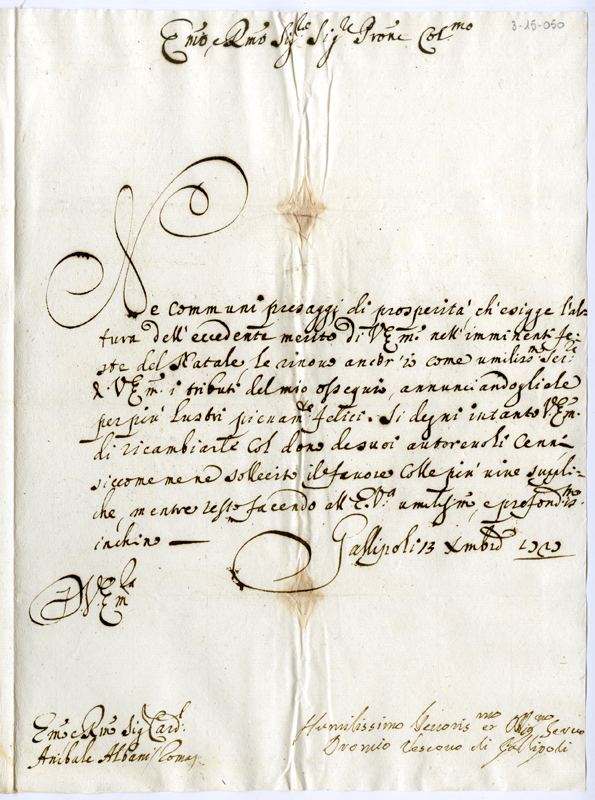 3-15-050
Emo, e Rmo Sigre Sigre Prone Colmo
Ne communi presaggi di prosperità ch'esigge l'al-
tura dell'eccedente merito di V. Em. nell'imminenti fe-
ste del Natale, le rinovo ancor'io come umilissmo
di V. Em. i tributi del mio ossequio, annunciandogliele
per più lustri pienamte felici. Si degni intanto V. Em.
di ricambiarle col dono de suoi autorevoli Cenni
siccome ne sollecito il favore colle più vive suppli-
che, mentre resto facendo all'E. Va umilissmo, e profondissmo
inchino —
Gallipoli 13 Xmbre
D V. Em.la
Emo e Rmo Sig. Card.l
Anibale Albani Roma
Humilissimo et Obligmo Servo
Oronzio Vescovo di Gallipoli